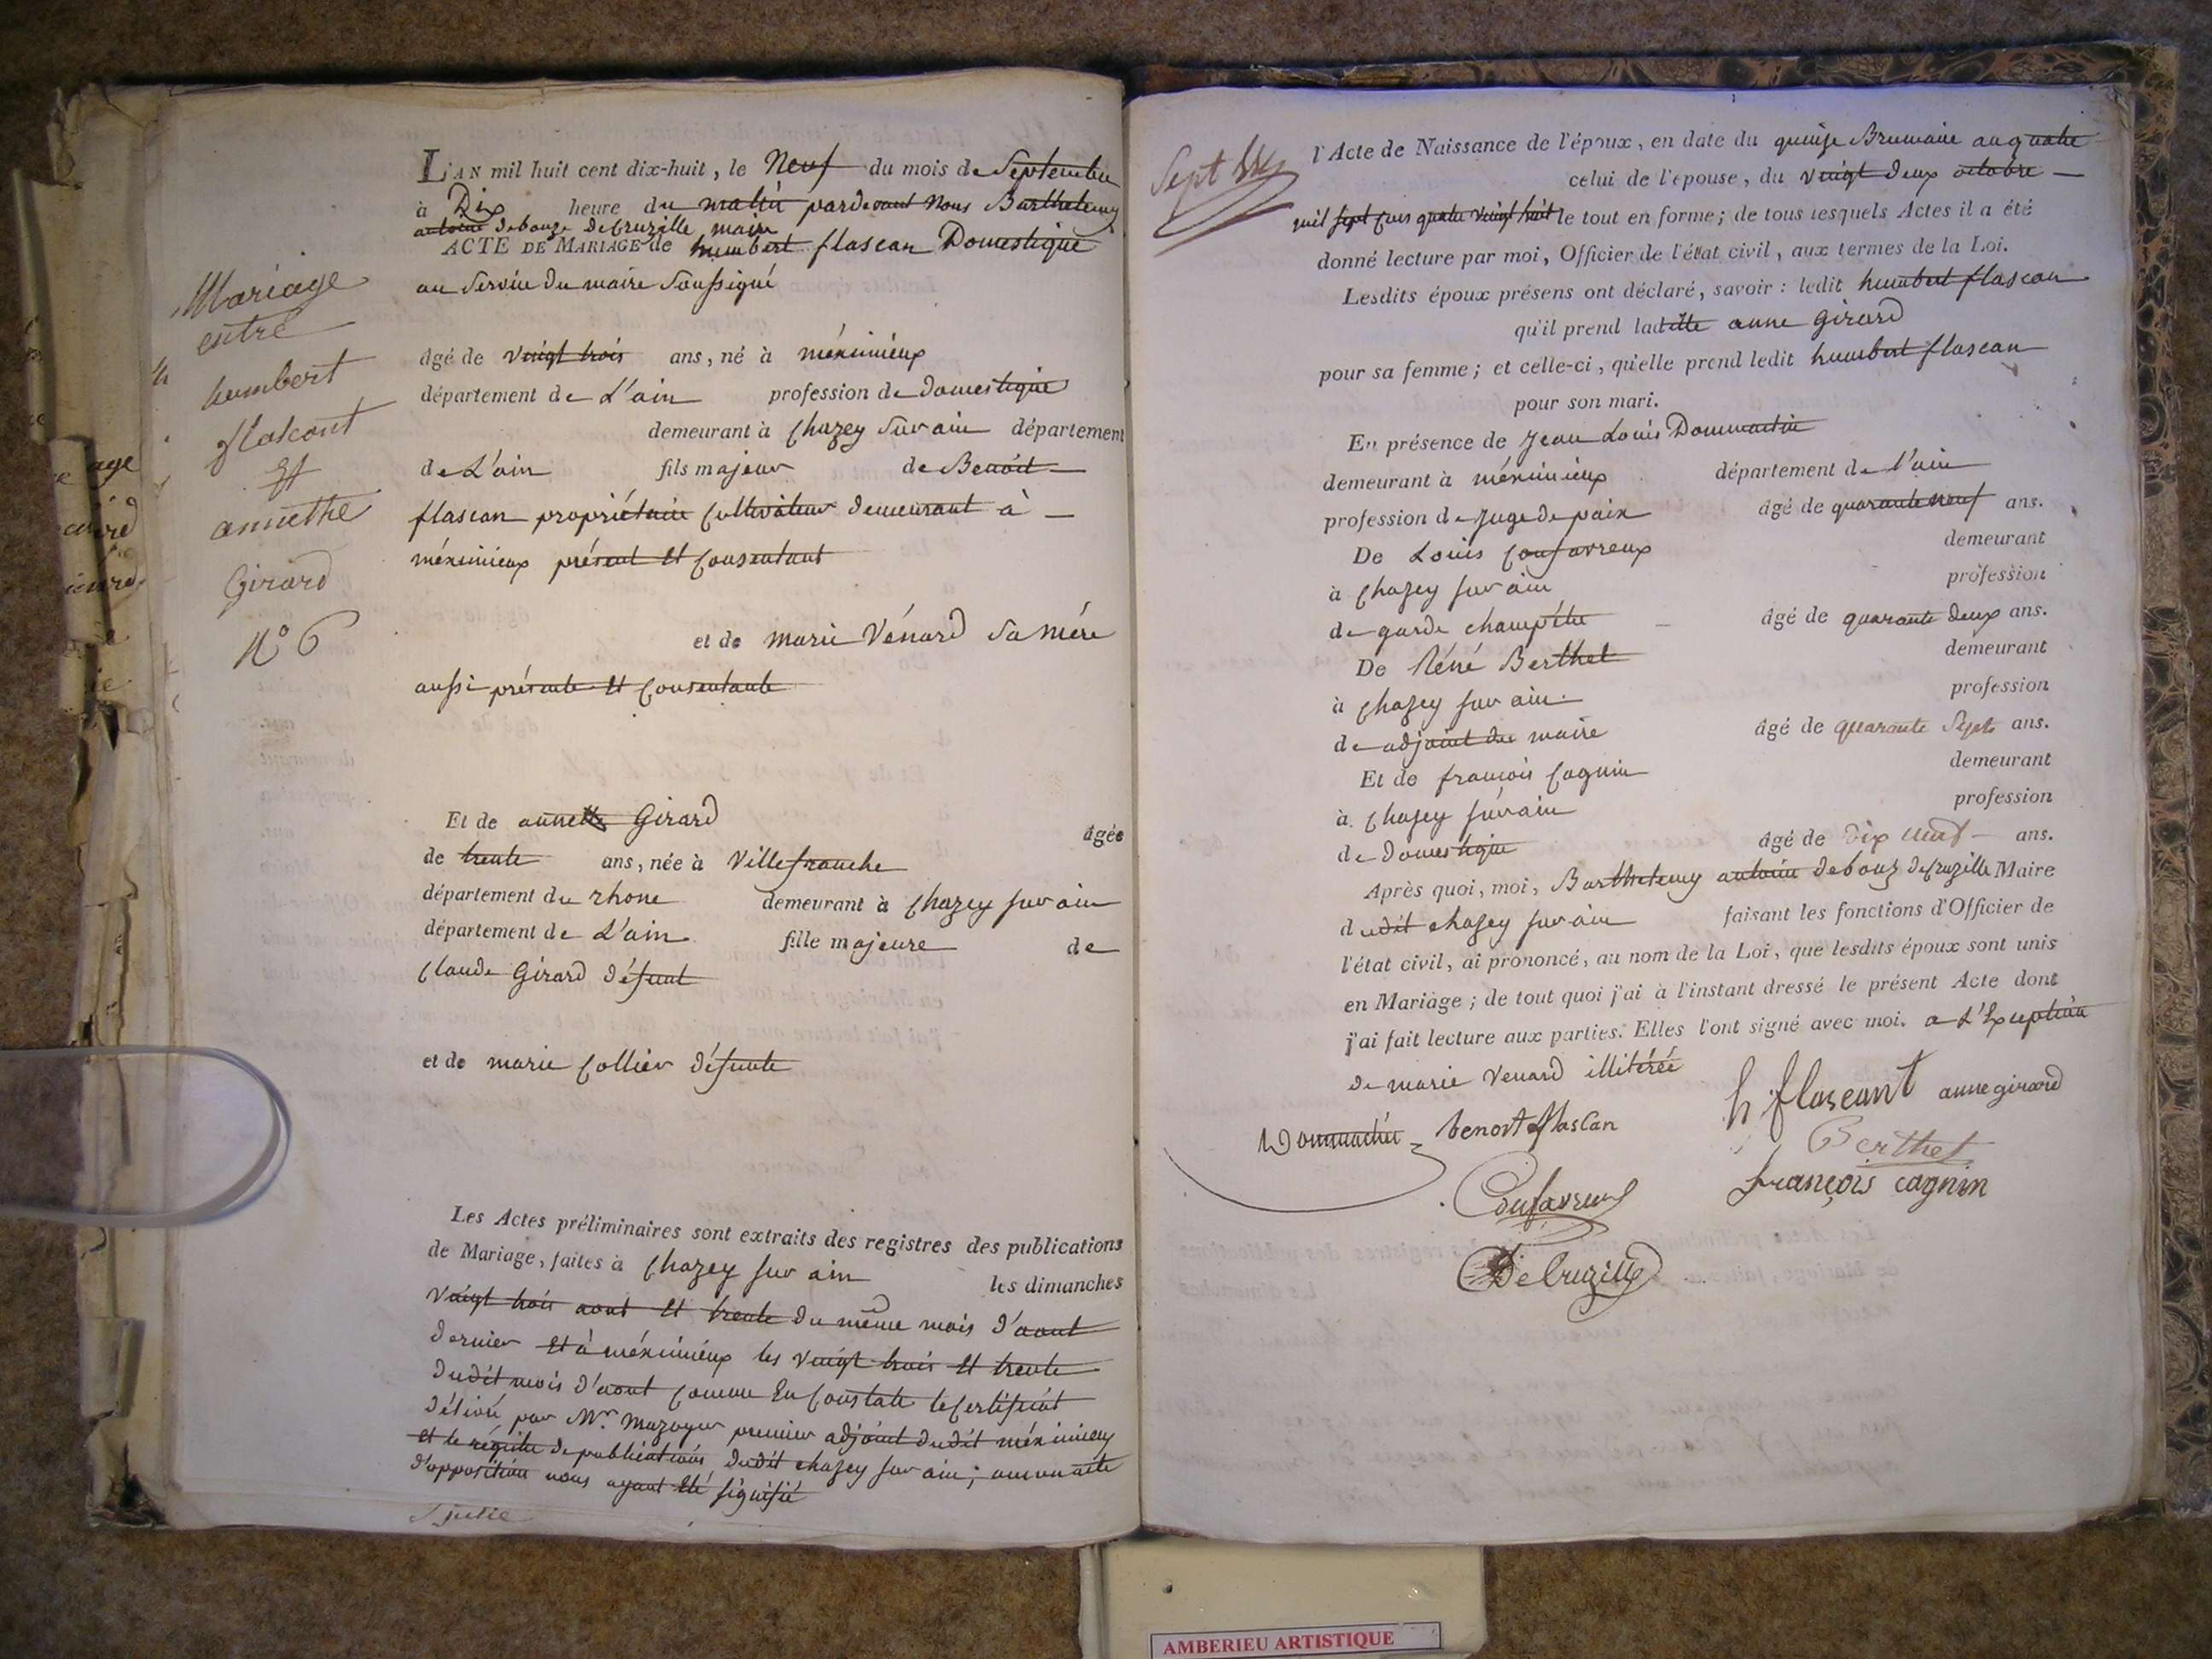 Mariage
entre
humbert
flascont
Et
annethe
Girard
N° 6
L'AN mil huit cent dix-huit, le Neuf du mois de Septembre
à Dix heure du matin pardevant Nous Barthelemy
antoine debouze decruzille maire
ACTE DE MARIAGE de humbert flascan Domestique
au Service du maire Soussigné
âgé de vingt trois ans, né à méximieux
département de L'ain profession de domestique
demeurant à Chazey Sur ain département
de L'ain fils majeur de Benoit
flascan propriétaire Cultivateur demeurant à
méximieux présent Et Consentant
et de marie Vénard Sa Mére
aussi présente Et Consentante
Et de annette Girard âgée
de trente ans, née à Villefranche
département du rhone demeurant à Chazey sur ain
département de L'ain fille majeure de
Claude Girard défunt
et de marie Collier défunte
Les Actes préliminaires sont extraits des registres des publications
de Mariage, faites à Chazey sur ain les dimanches
Vingt trois aout Et trente du même mois d'aout
dernier Et à méximieux les vingt trois Et trente
dudit mois d'aout Comme En Constate le Certificat
délivré par Mr. Mazoyer premier adjoint dudit méximieux
et le régistre de publications dudit chazey sur ain; aucun acte
d'opposition nous ayant Eté signifié
l'Acte de Naissance de l'époux, en date du quinze Brumaire an quatre
celui de l'épouse, du vingt deux octobre
mil sept cens quatre vingt huit le tout en forme; de tous lesquels Actes il a été
donné lecture par moi, Officier de l'état civil, aux termes de la Loi.
Lesdits époux présens ont déclaré, savoir: ledit humbert flascan
qu'il prend ladite anne Girard
pour sa femme; et celle-ci, qu'elle prend ledit humbert flascan
pour son mari.
En présence de Jean Louis Dommartin
demeurant à méximieux département de l'ain
profession de Juge de paix âgé de quarante neuf ans.
De Louis Confavreux demeurant
à Chazey sur ain profession
de garde champêtre âgé de quarante deux ans.
De Réné Berthet demeurant
à Chazey sur ain profession
de adjoint du maire âgé de quarante Sept ans.
Et de françois Cagnin demeurant
à Chazey sur ain profession
de domestique âgé de Dix neuf ans.
Après quoi, moi, Barthelemy antoine debouz decruzille Maire
dudit chazey sur ain faisant les fonctions d'Officier de
l'état civil, ai prononcé, au nom de la Loi, que lesdits époux sont unis
en Mariage; de tout quoi j'ai à l'instant dressé le présent Acte dont
j'ai fait lecture aux parties. Elles l'ont signé avec moi. a L'Exception
de marie Venard illitérée
h flascant anne girard
Dommartin benoit flascan
Berthet
Confavreux françois cagnin
DeCruzille
AMBERIEU ARTISTIQUE